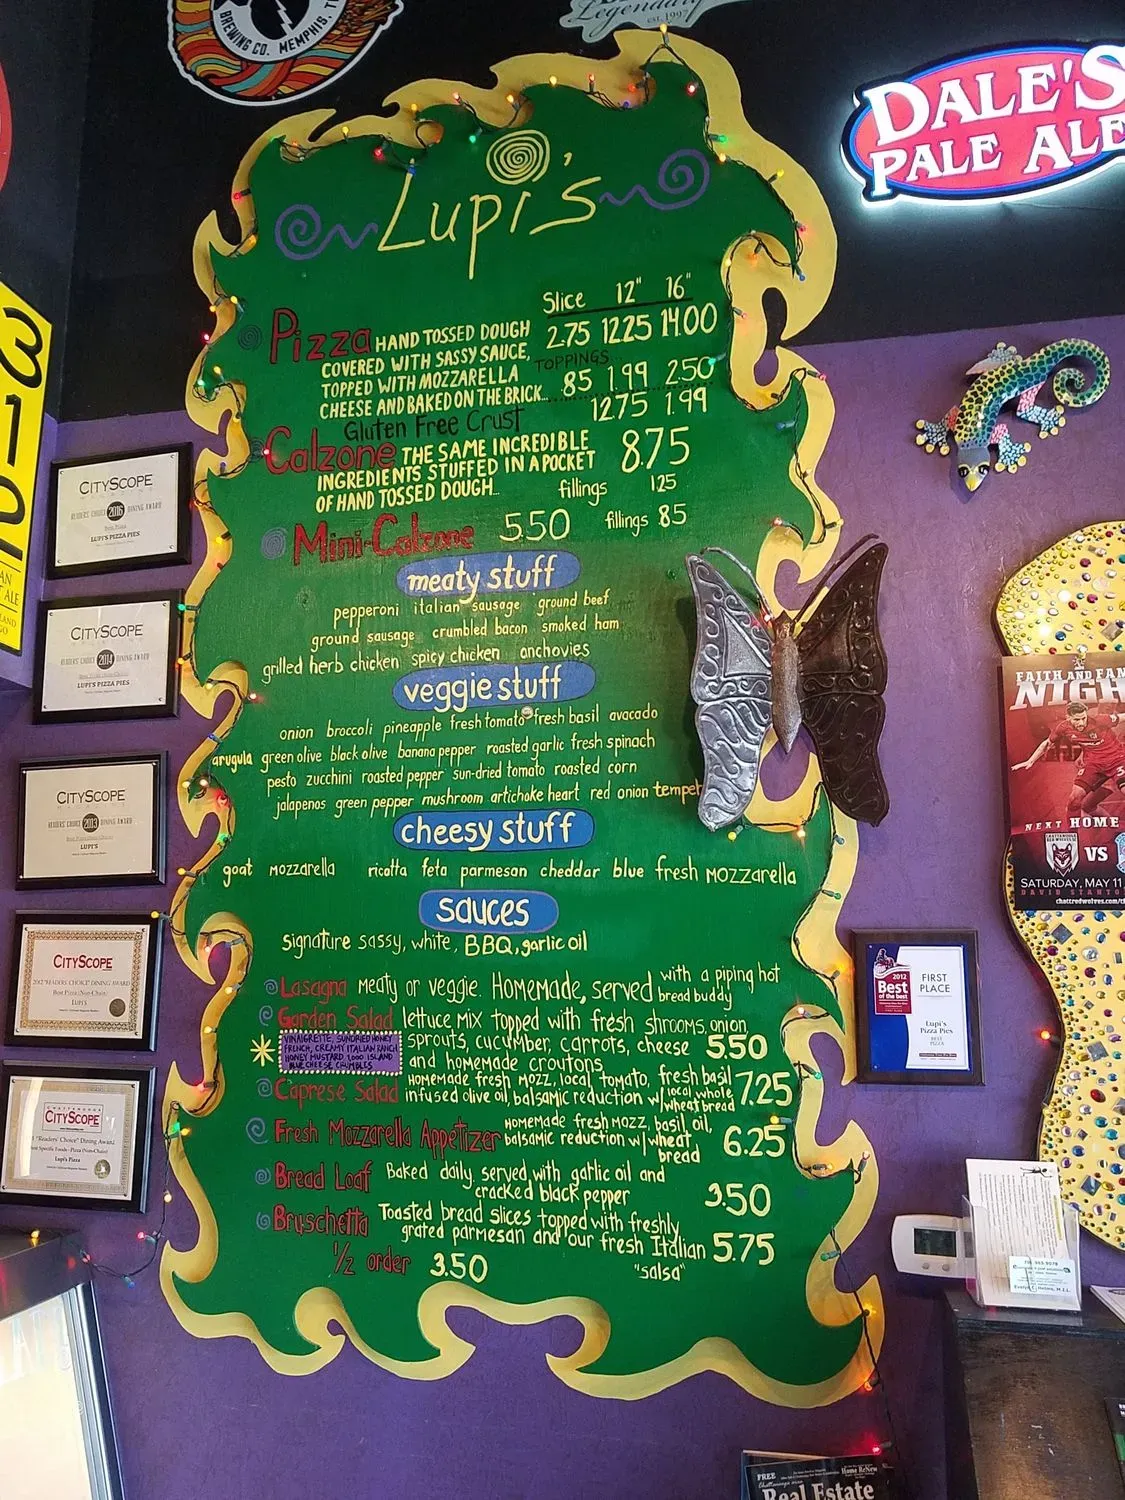 BREWING CO. MEMPHIS, T
Legendary
est. 1997
DALE'S
PALE ALE
Lupi's
Slice 12" 16"
Pizza HAND TOSSED DOUGH 2.75 12.25 14.00
COVERED WITH SASSY SAUCE, TOPPINGS...
TOPPED WITH MOZZARELLA .85 1.99 2.50
CHEESE AND BAKED ON THE BRICK...
Gluten Free Crust 12.75 1.99
Calzone THE SAME INCREDIBLE 8.75
INGREDIENTS STUFFED IN A POCKET
OF HAND TOSSED DOUGH... fillings 1.25
Mini-Calzone 5.50 fillings .85
meaty stuff
pepperoni italian sausage ground beef
ground sausage crumbled bacon smoked ham
grilled herb chicken spicy chicken anchovies
veggie stuff
onion broccoli pineapple fresh tomato fresh basil avocado
arugula green olive black olive banana pepper roasted garlic fresh spinach
pesto zucchini roasted pepper sun-dried tomato roasted corn
jalapenos green pepper mushroom artichoke heart red onion tempeh
cheesy stuff
goat mozzarella ricotta feta parmesan cheddar blue fresh mozzarella
sauces
signature sassy, white, BBQ, garlic oil
Lasagna meaty or veggie. Homemade, served with a piping hot
bread buddy
Garden Salad lettuce mix topped with fresh shrooms, onion,
sprouts, cucumber, carrots, cheese 5.50
and homemade croutons
VINAIGRETTE, SUNDRIED HONEY
FRENCH, CREAMY ITALIAN, RANCH
HONEY MUSTARD, 1,000 ISLAND
BLUE CHEESE CRUMBLES
Caprese Salad Homemade fresh mozz, local tomato, fresh basil
infused olive oil, balsamic reduction w/ local whole wheat bread 7.25
Fresh Mozzarella Appetizer Homemade fresh mozz, basil, oil,
balsamic reduction w/ wheat bread 6.25
Bread Loaf Baked daily, served with garlic oil and
cracked black pepper 3.50
Bruschetta Toasted bread slices topped with freshly
grated parmesan and our fresh Italian 5.75
"salsa"
1/2 order 3.50
3
1
CITYSCOPE
READERS' CHOICE 2016 DINING AWARD
Best Pizza
LUPI'S PIZZA PIES
CITYSCOPE
READERS' CHOICE 2014 DINING AWARD
LUPI'S PIZZA PIES
CITYSCOPE
READERS' CHOICE 2013 DINING AWARD
LUPI'S
CITYSCOPE
2012 "READERS' CHOICE" DINING AWARD
Best Pizza (Non-Chain)
LUPI'S
CITYSCOPE
"Readers' Choice" Dining Award
Lupi's Pizza
FAITH AND FAM
NIGH
NEXT HOME
VS
SATURDAY, MAY 11
DAVID STANTO
chattredwolves.com/
2012
Best
of the best
FIRST
PLACE
Lupi's
Pizza Pies
BEST
PIZZA
FREE
Home ReNew
Real Estate